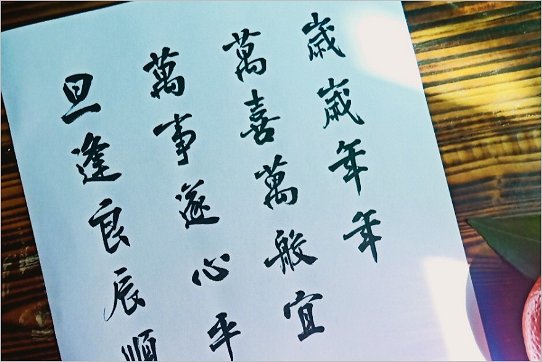 歲歲年年
萬喜萬般宜
萬事遂心平
旦逢良辰順